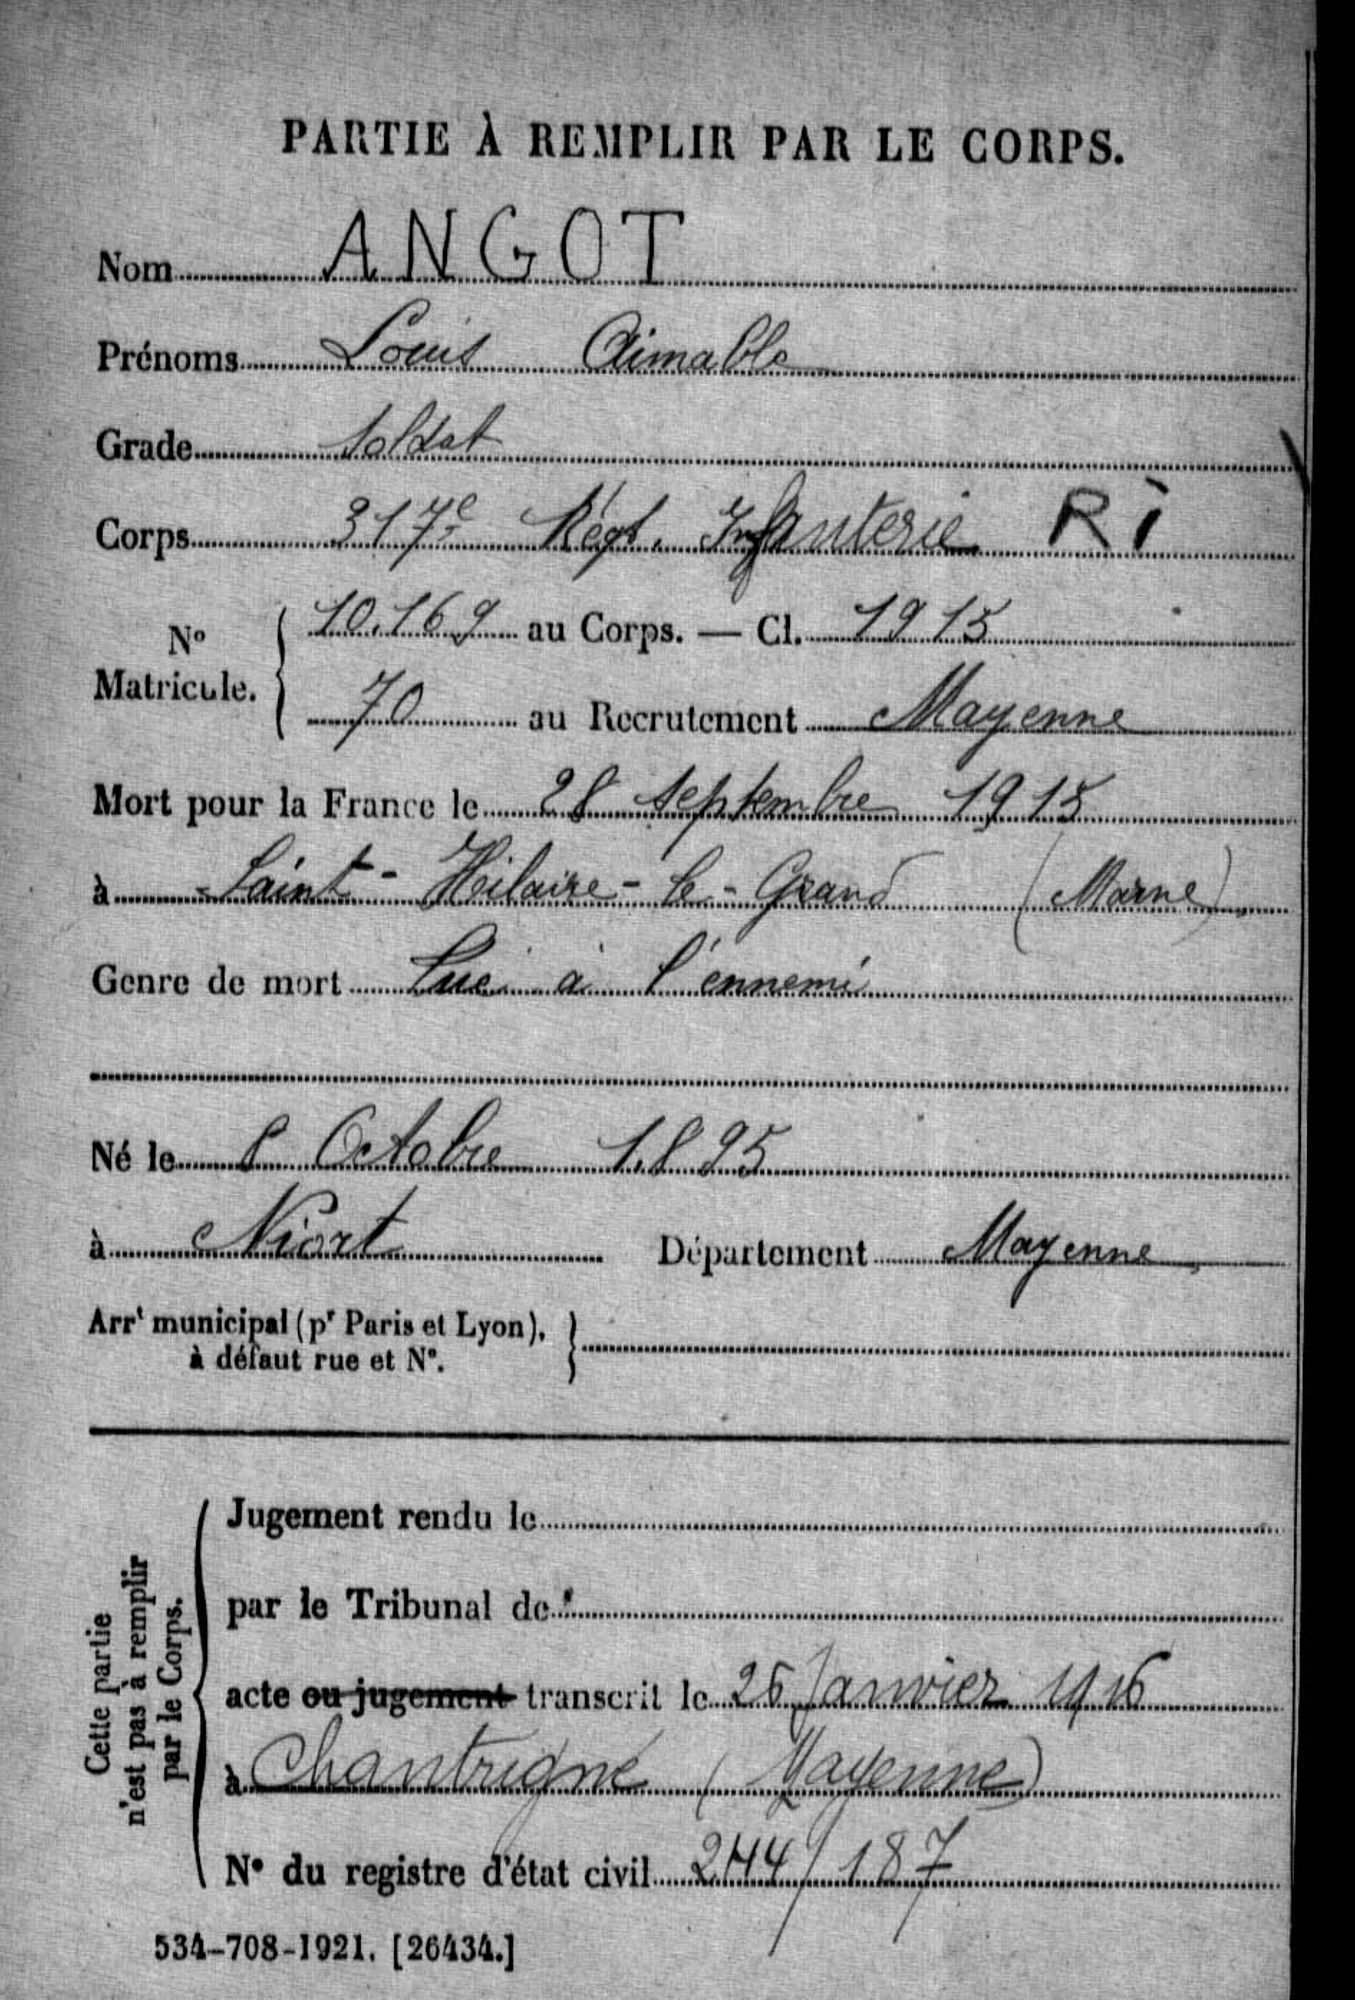 PARTIE À REMPLIR PAR LE CORPS.
Nom ANGOT
Prénoms Louis Aimable
Grade Soldat
Corps 317e Régt. Infanterie RI
N° Matricule. { 10.169 au Corps. — Cl. 1915
70 au Recrutement Mayenne
Mort pour la France le 28 septembre 1915
à Saint-Hilaire-le-Grand (Marne)
Genre de mort Tué à l'ennemi
Né le 8 Octobre 1895
à Niort Département Mayenne
Arrt municipal (pr Paris et Lyon), }
à défaut rue et N°.
Cette partie
n'est pas à remplir
par le Corps.
Jugement rendu le
par le Tribunal de
acte ou jugement transcrit le 26 Janvier 1916
à Chantrigné (Mayenne)
N° du registre d'état civil 244/187
534-708-1921. [26434.]